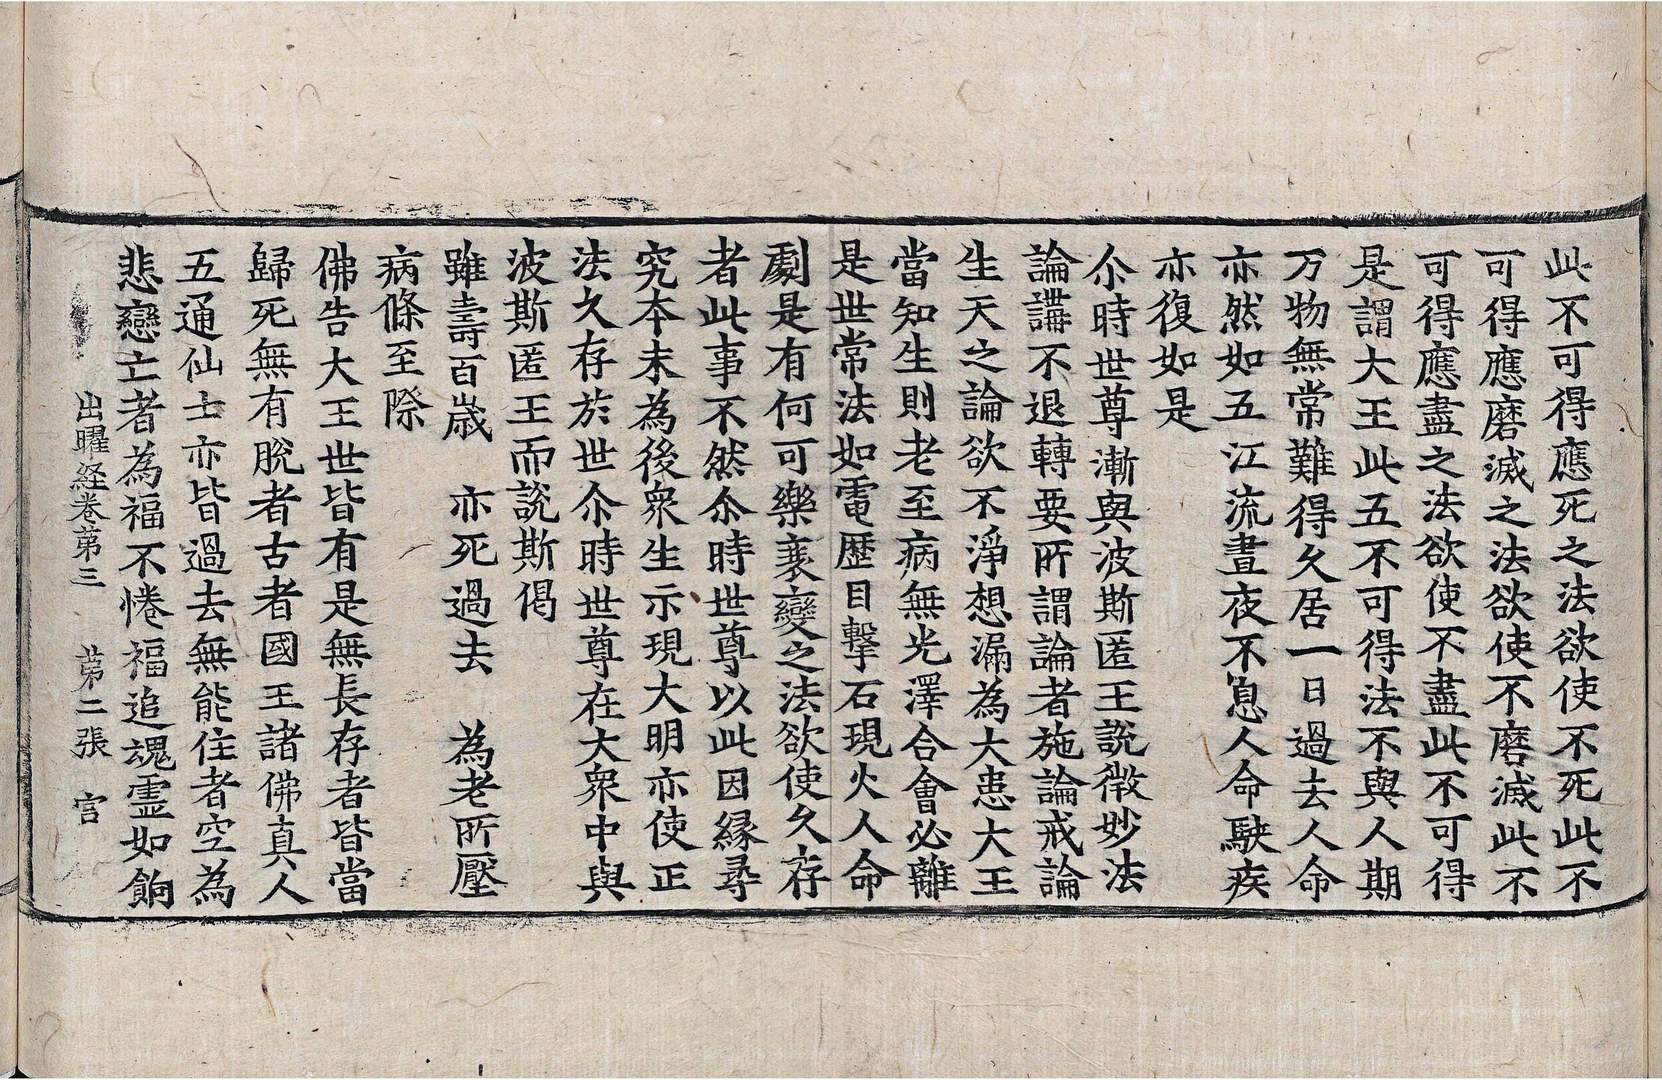 此不可得應死之法欲使不死此不
可得應磨滅之法欲使不磨滅此不
可得應盡之法欲使不盡此不可得
是謂大王此五不可得法不與人期
万物無常難得久居一日過去人命
亦然如五江流晝夜不息人命駃疾
亦復如是
尒時世尊漸與波斯匿王說微妙法
論講不退轉要所謂論者施論戒論
生天之論欲不淨想漏為大患大王
當知生則老至病無光澤合會必離
是世常法如電歷目擊石現火人命
劇是有何可樂衰變之法欲使久存
者此事不然尒時世尊以此因緣尋
究本末為後眾生示現大明亦使正
法久存於世尒時世尊在大眾中與
波斯匿王而說斯偈
雖壽百歲　亦死過去　為老所壓
病條至際
佛告大王世皆有是無長存者皆當
歸死無有脫者古者國王諸佛真人
五通仙士亦皆過去無能住者空為
悲戀亡者為福不惓福追魂靈如餉
出曜経卷苐三　苐二張　宫